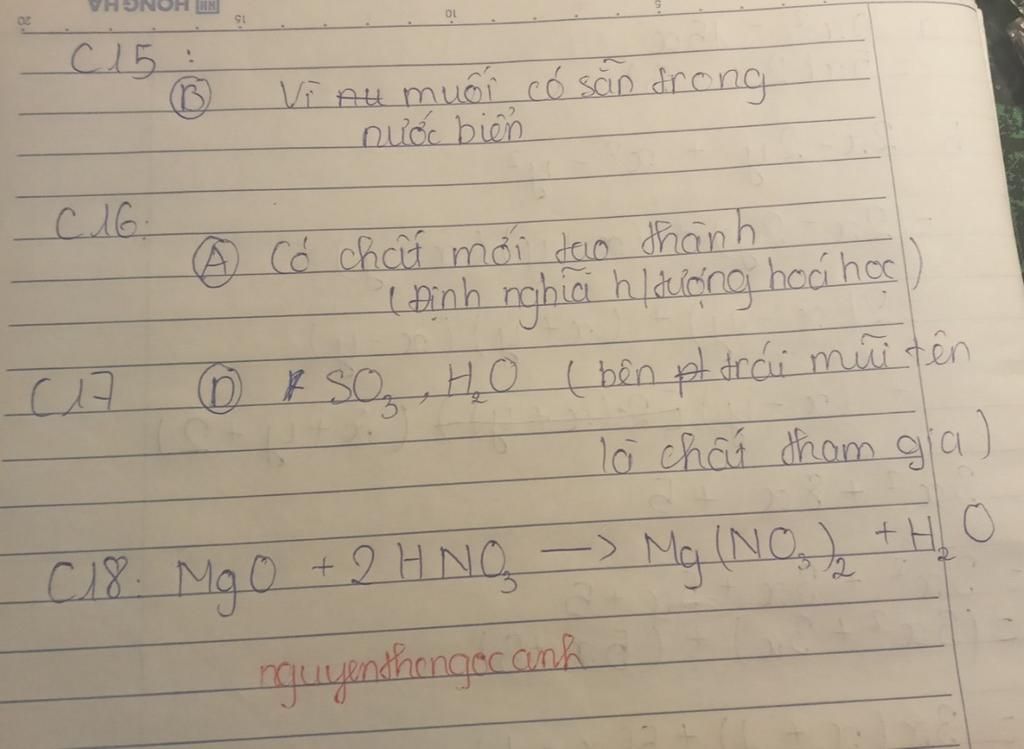 HONG HA
20 15 10 5
C15 :
B Vì muối có sẵn trong
nước biển
C16.
A Có chất mới tạo thành
(Định nghĩa h/tượng hoá học)
C17 D SO₃, H₂O (bên trái mũi tên
là chất tham gia)
C18. MgO + 2HNO₃ → Mg(NO₃)₂ + H₂O
nguyenthengocanh